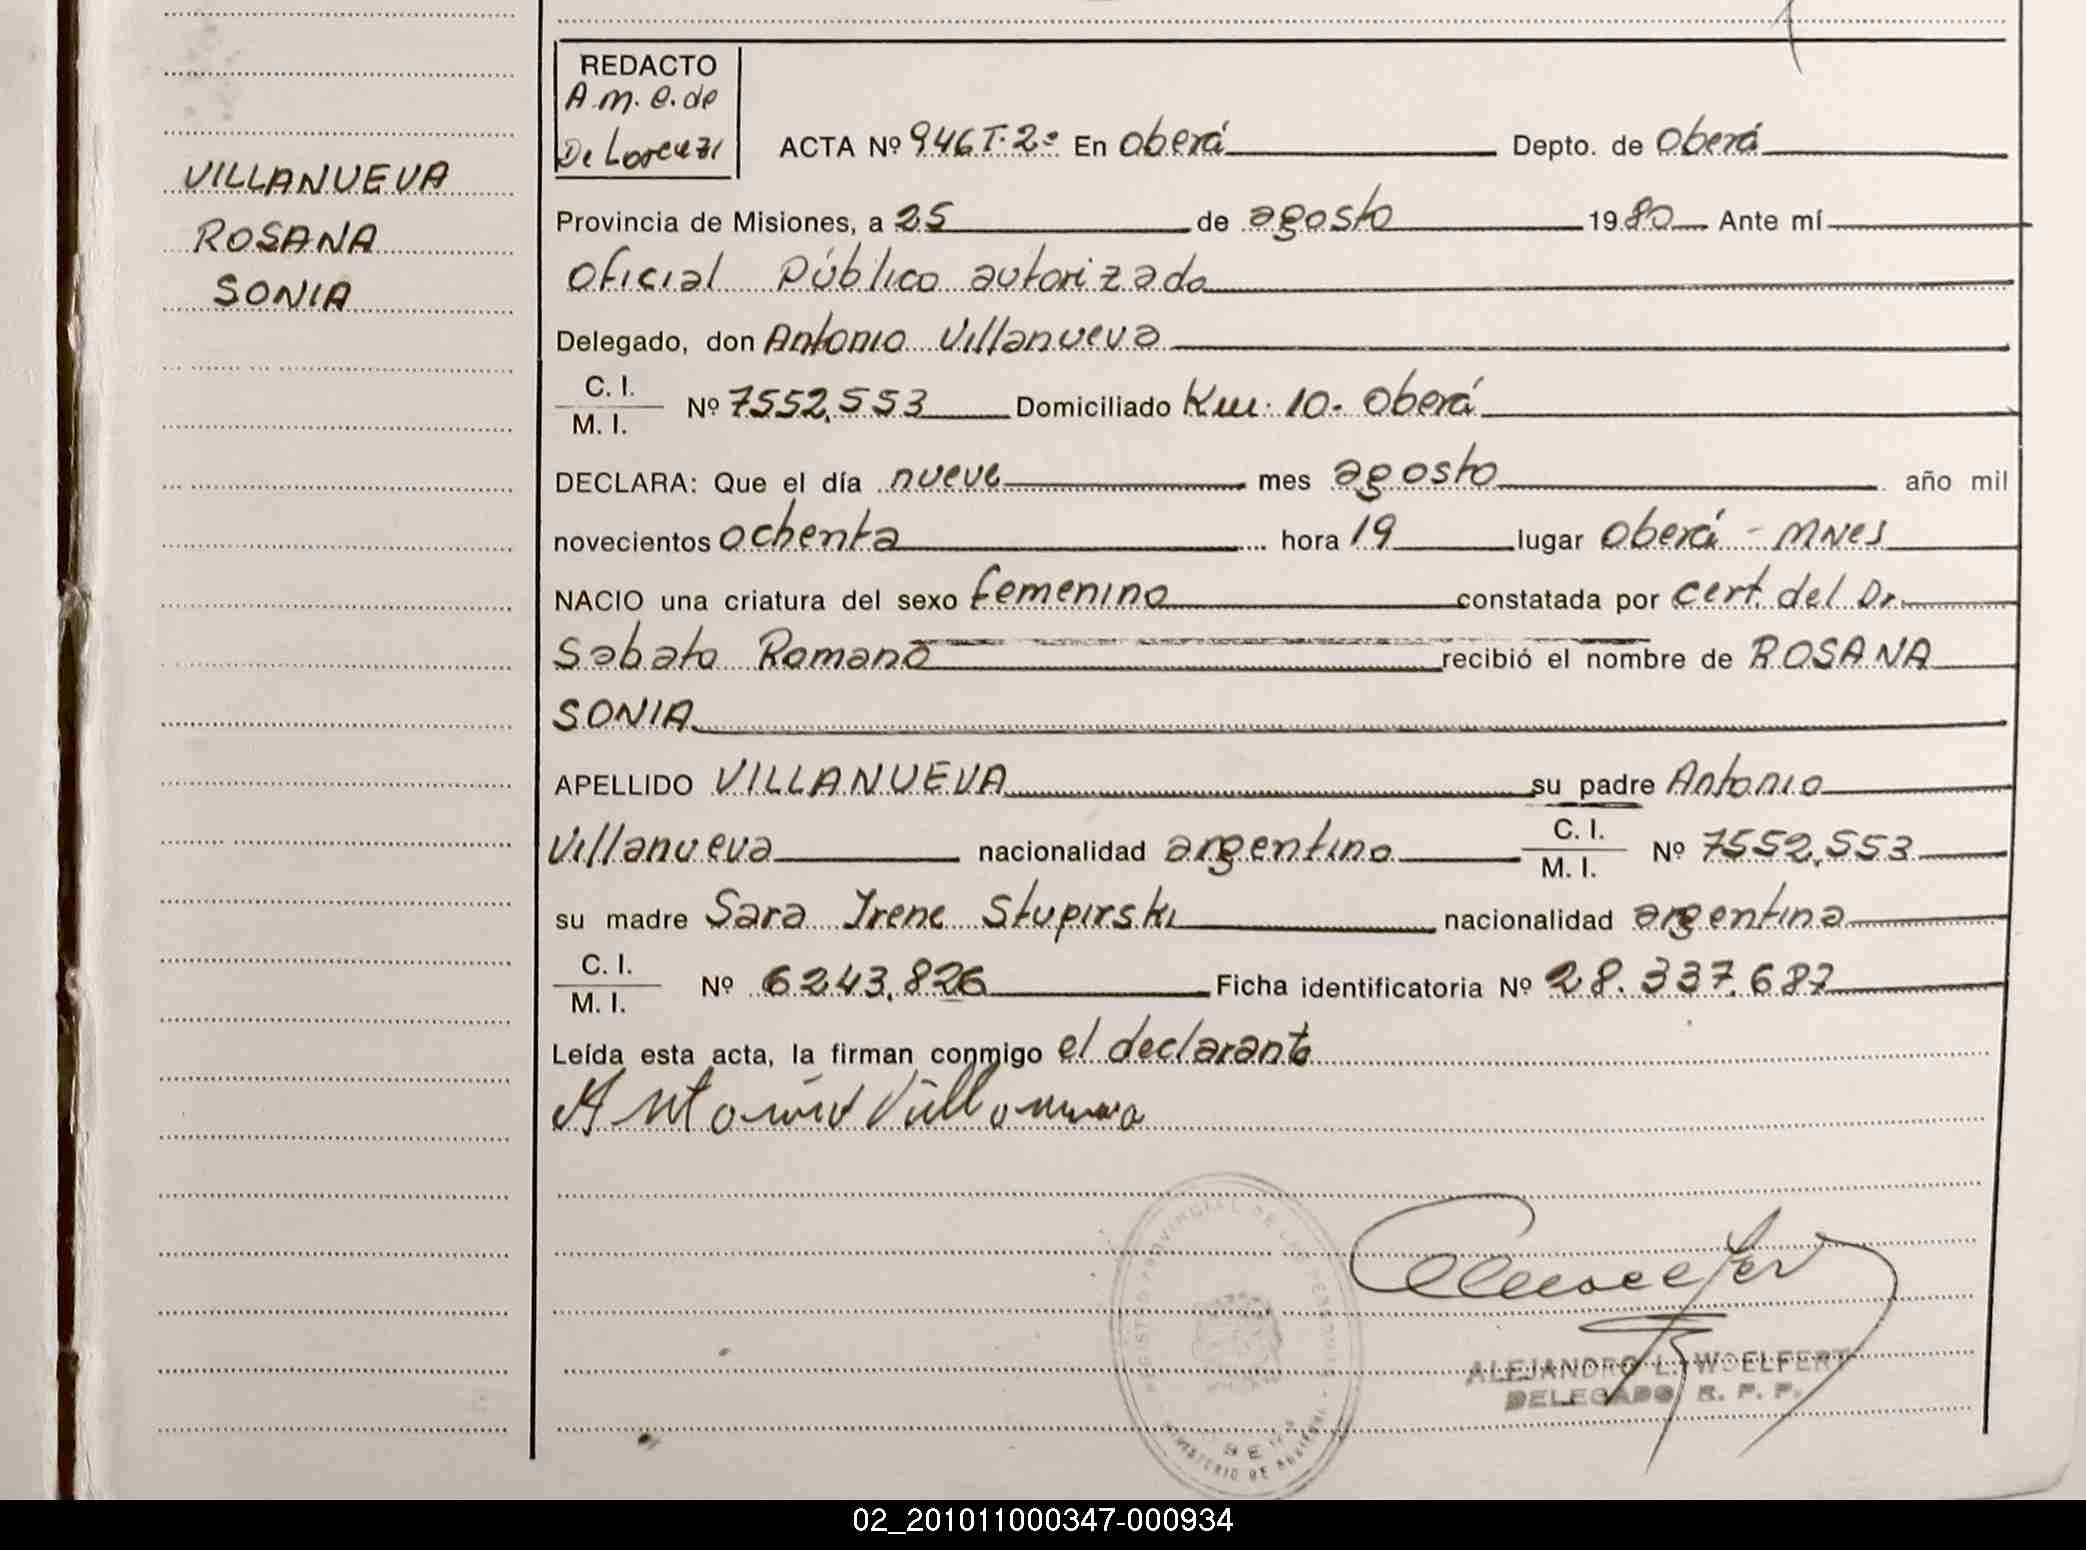 REDACTO
A.M.e.de
De Lorenzi
VILLANUEVA
ROSANA
SONIA
ACTA Nº 946 T. 2º En Oberá Depto. de Oberá
Provincia de Misiones, a 25 de agosto 1980 Ante mí
Oficial Público autorizado
Delegado, don Antonio Villanueva
C. I.
M. I. Nº 7552,553 Domiciliado Km. 10. Oberá
DECLARA: Que el día nueve mes agosto año mil
novecientos ochenta hora 19 lugar Oberá - MNES
NACIO una criatura del sexo femenino constatada por cert. del Dr.
Sabato Romano recibió el nombre de ROSANA
SONIA
APELLIDO VILLANUEVA su padre Antonio
Villanueva nacionalidad argentino C. I. M. I. Nº 7552,553
su madre Sara Irene Stupirski nacionalidad argentina
C. I.
M. I. Nº 6243,826 Ficha identificatoria Nº 28.337.687
Leída esta acta, la firman conmigo el declarante
Antonio Villanueva
REGISTRO PROVINCIAL DE LAS PERSONAS
MINISTERIO DE
ALEJANDRO L. WOELFERT
DELEGADO R. P. P.
02_201011000347-000934